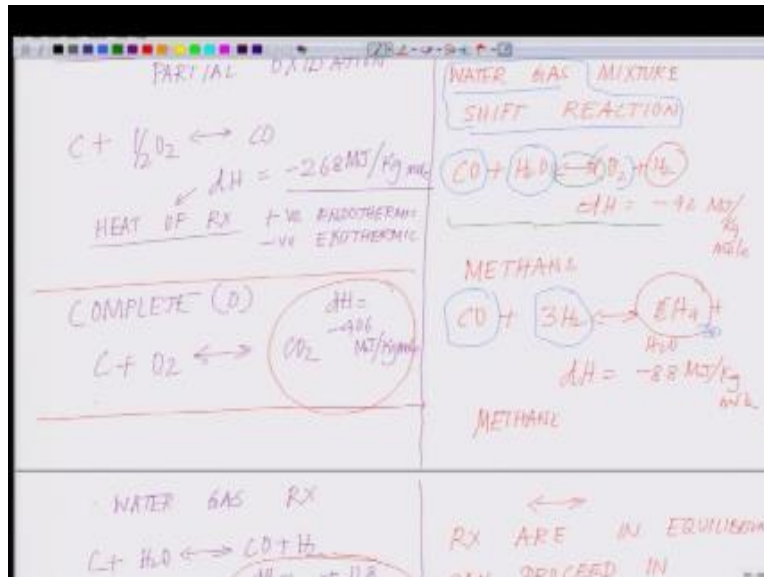 PARTIAL OXIDATION
C + 1/2 O2 <-> CO
dH = -268 MJ/Kg mole
HEAT OF RX +ve ENDOTHERMIC
-ve EXOTHERMIC
COMPLETE (O)
C + O2 <-> CO2
dH =
-406
MJ/Kgmole
WATER GAS RX
C + H2O <-> CO + H2
dH = +118
WATER GAS MIXTURE
SHIFT REACTION
CO + H2O <-> CO2 + H2
dH = -42 MJ/
Kg
mole
METHANE
CO + 3H2 <-> CH4 +
H2O
dH = -88 MJ/Kg
mole
METHANE
<->
RX ARE IN EQUILIBRIUM
CAN PROCEED IN